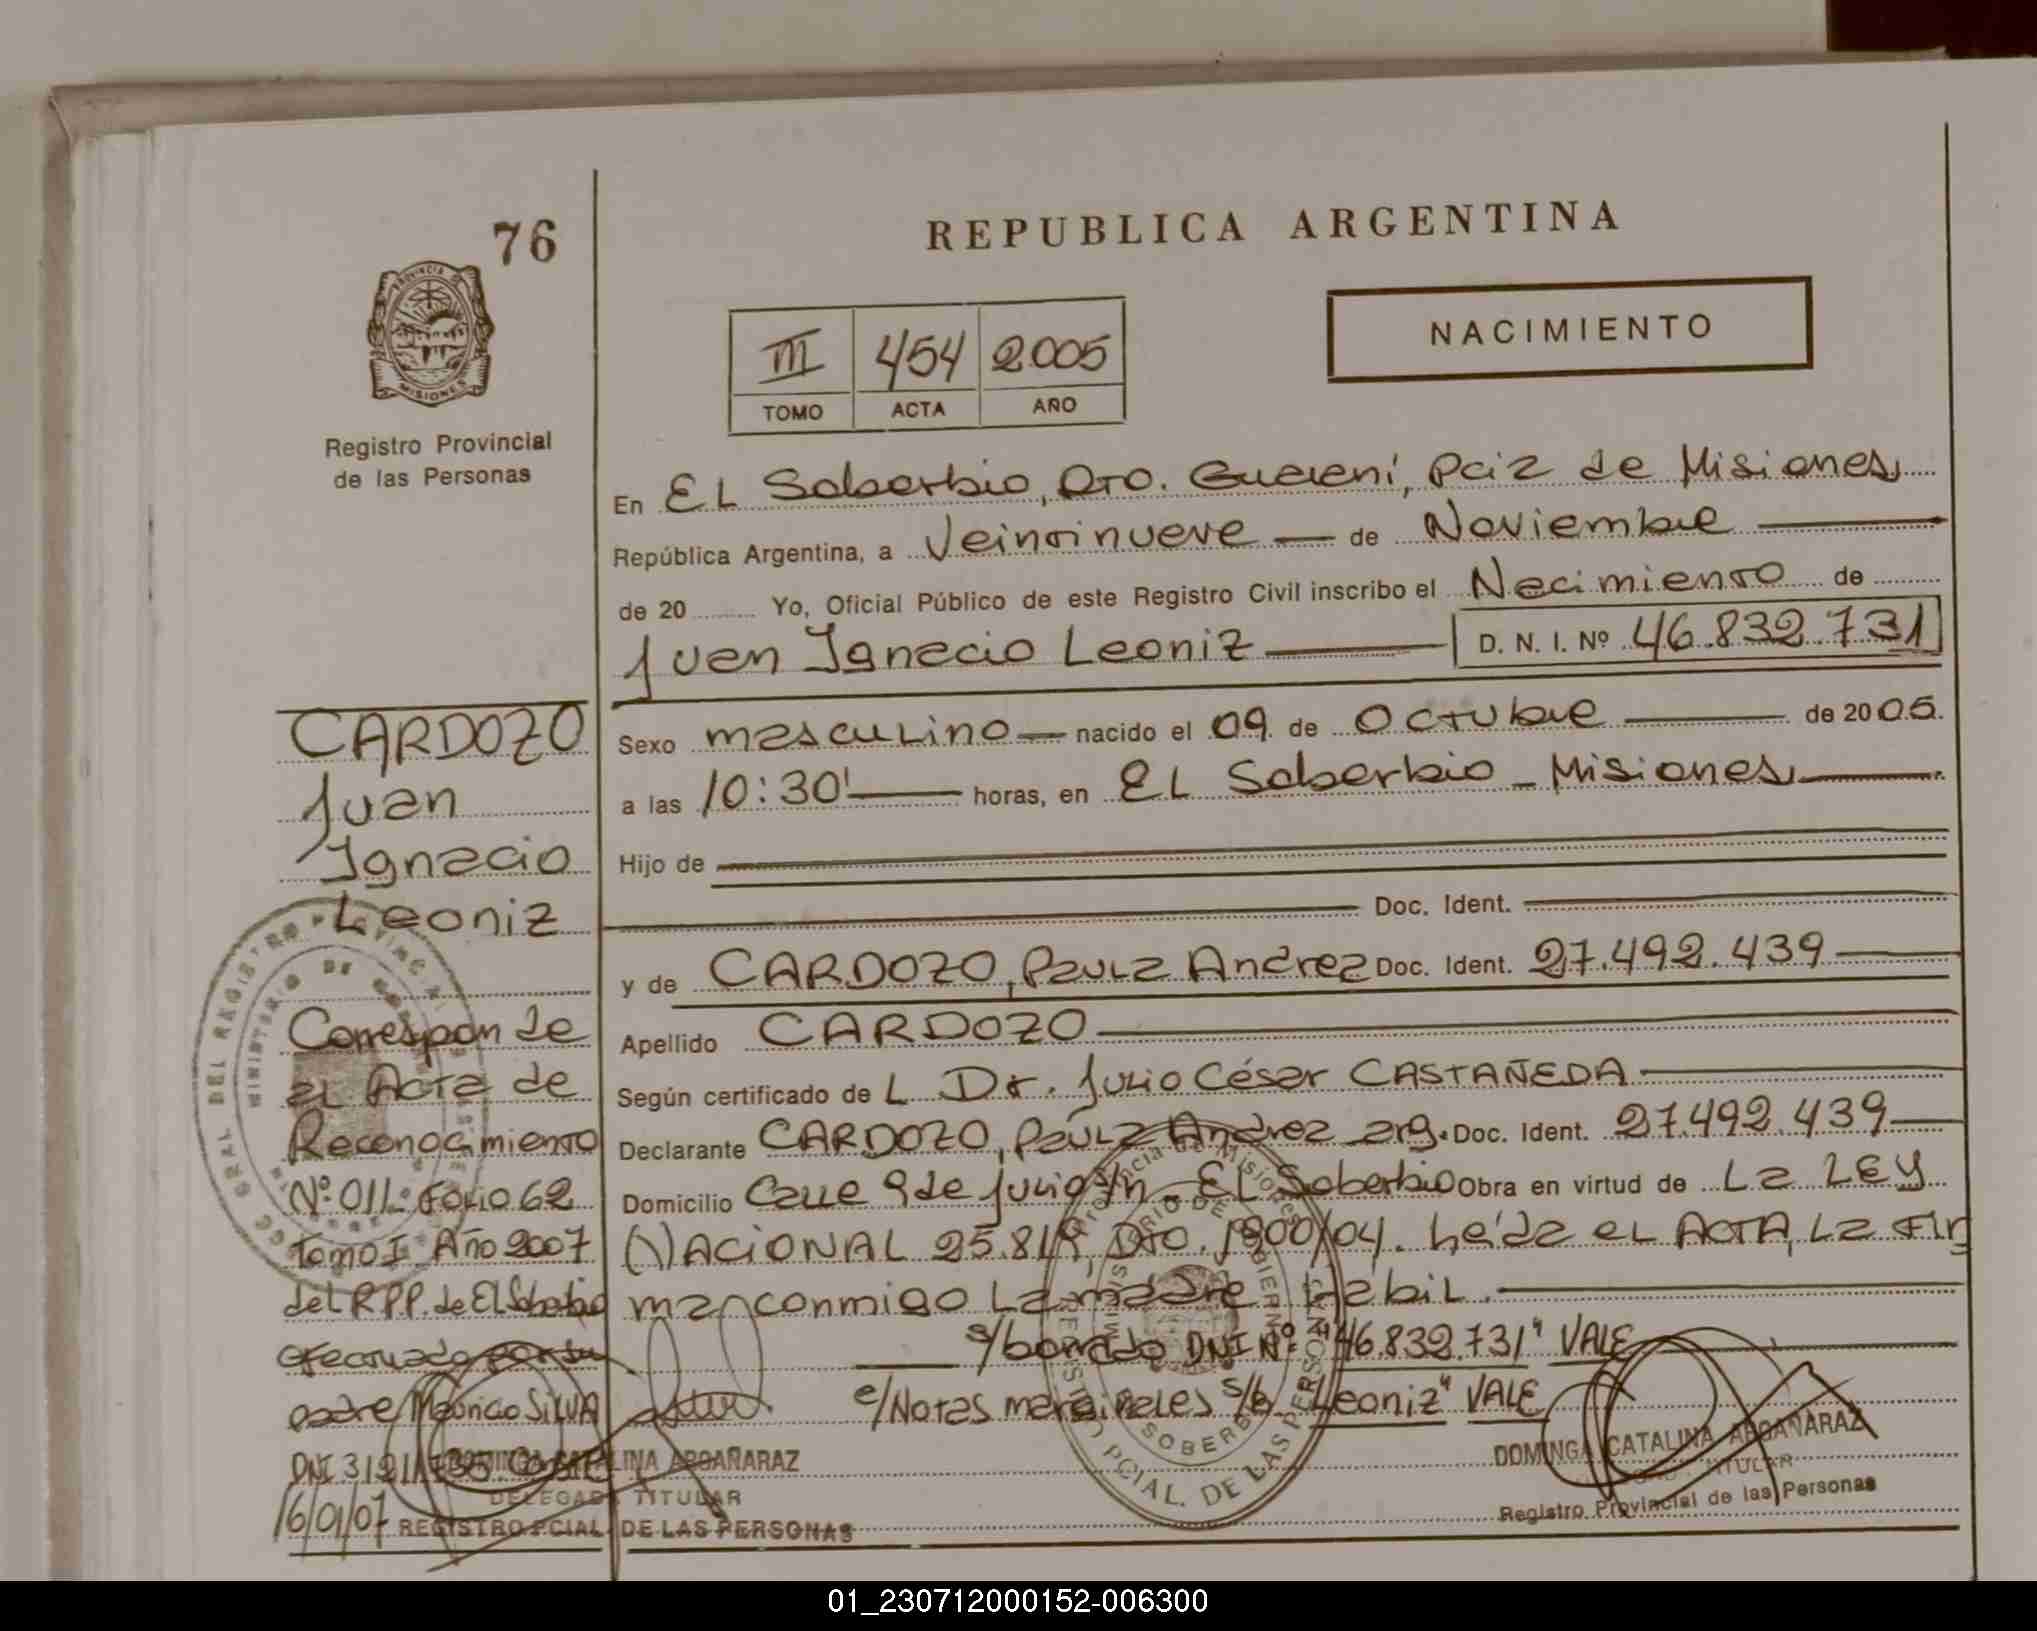 76
REPUBLICA ARGENTINA
NACIMIENTO
III 454 2005
TOMO ACTA AÑO
PROVINCIA DE
MISIONES
Registro Provincial
de las Personas
En EL Soberbio, Dto. Guaraní, Pcia de Misiones
República Argentina, a Veintinueve — de Noviembre
de 20 ........ Yo, Oficial Público de este Registro Civil inscribo el Nacimiento de
Juan Ignacio Leoniz D. N. I. Nº 46.832.731
Sexo masculino nacido el 09 de Octubre de 2005.
a las 10:30' horas, en EL Soberbio - Misiones
Hijo de
Doc. Ident.
y de CARDOZO, Paula Andrea Doc. Ident. 27.492.439
Apellido CARDOZO
Según certificado de L Dr. Julio César CASTAÑEDA
Declarante CARDOZO, Paula Andrea arg. Doc. Ident. 27.492.439
Domicilio Calle 9 de julio s/n - EL Soberbio Obra en virtud de La LEY
NACIONAL 25.819 Dto. 1900/04. Leída el ACTA, La fir
ma conmigo La madre Habil.
s/borrado DNI Nº "46.832.731" VALE
e/Notas marginales s/b "Leoniz" VALE
CARDOZO
Juan
Ignacio
Leoniz
Corresponde
al Acta de
Reconocimiento
Nº 011 Folio 62
Tomo I Año 2007
del R.P.P. de El Soberbio
efectuado por su
padre Mauricio SILVA
DNI
16/01/07
DOMINGA CATALINA ARGAÑARAZ
DELEGADA TITULAR
REGISTRO PCIAL. DE LAS PERSONAS
DOMINGA CATALINA ARGAÑARAZ
TITULAR
Registro Provincial de las Personas
01_230712000152-006300